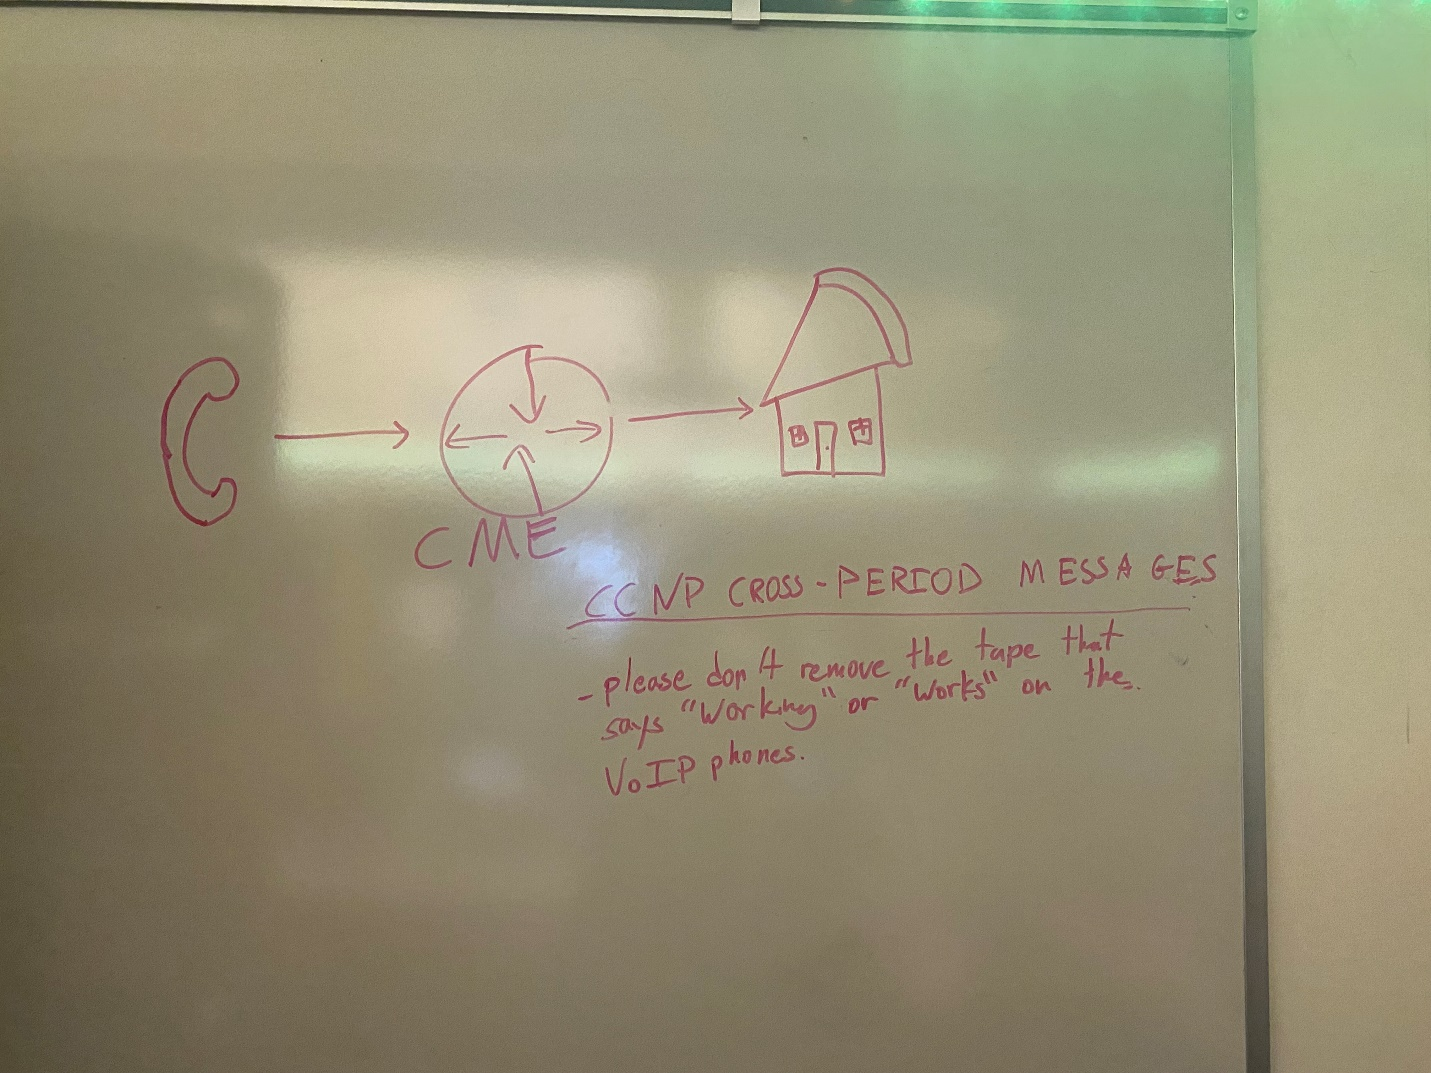 CME
CCNP CROSS-PERIOD MESSAGES
- please don't remove the tape that
says "Working" or "Works" on the
VoIP phones.